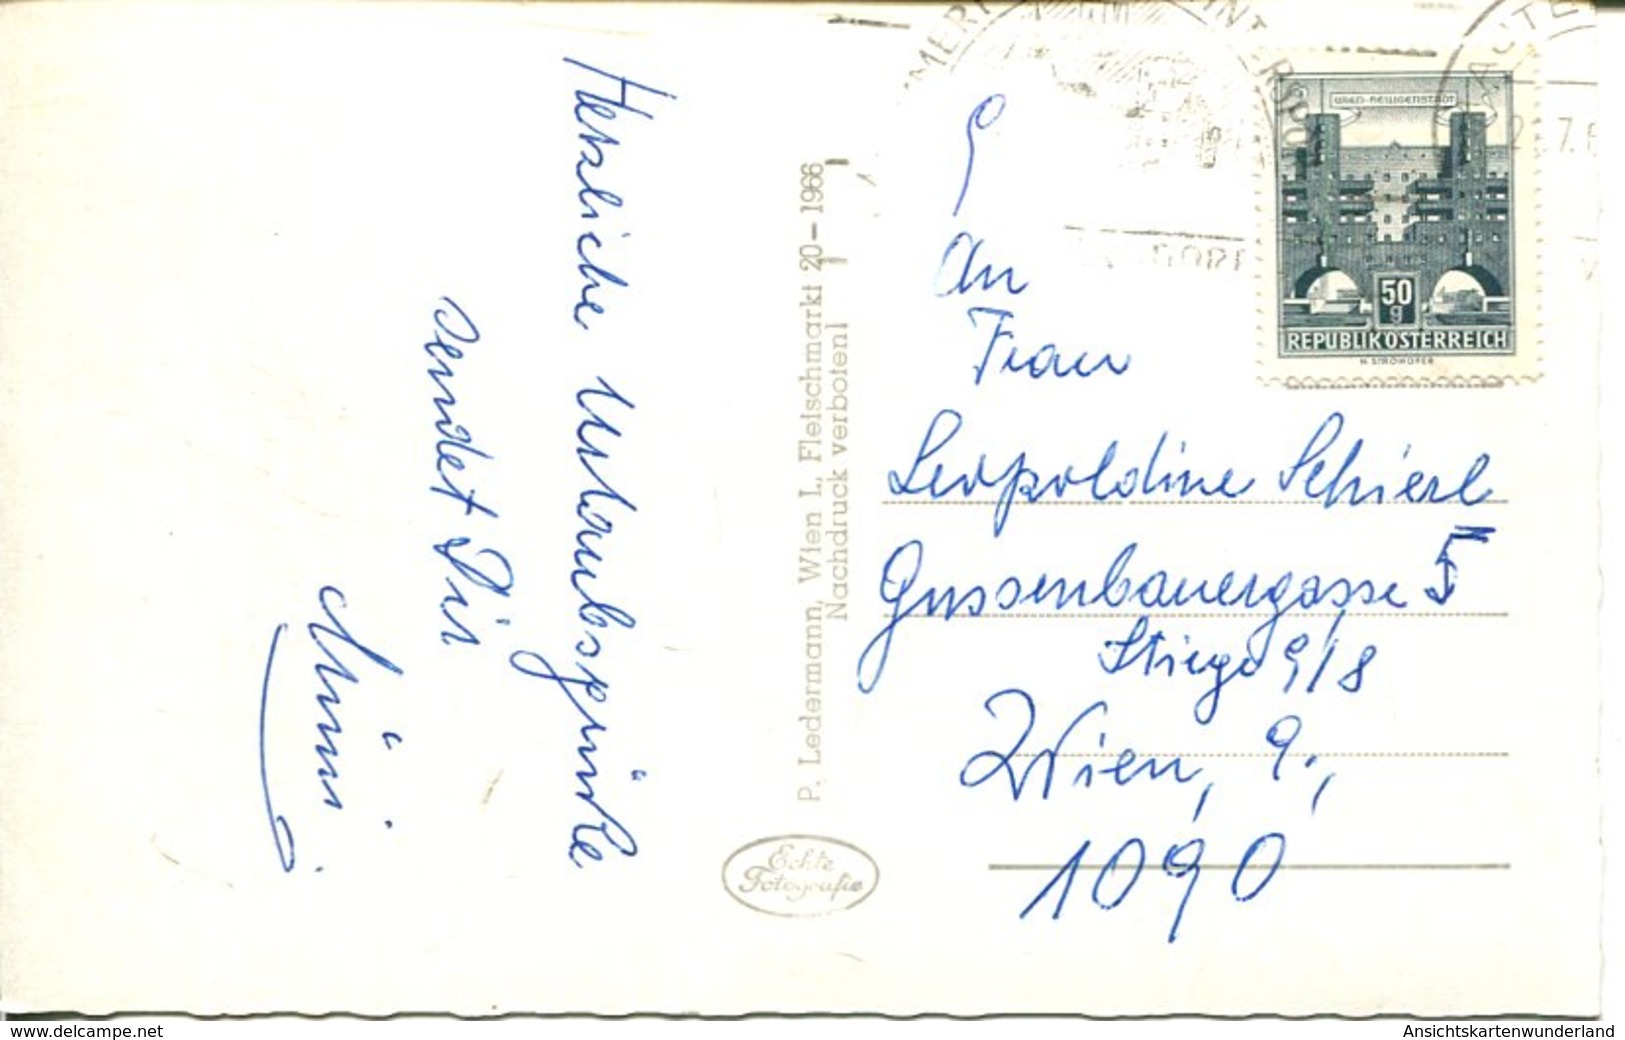 Herzliche Urlaubsgrüße
sendet Dir
Mimi
P. Ledermann, Wien I., Fleischmarkt 20 - 1966
Nachdruck verboten!
Echte
Fotografie
WIEN-HEILIGENSTADT
50
g
REPUBLIK OSTERREICH
H. STROHOFER
An
Frau
Leopoldine Schierl
Gussenbauergasse 5
Stiege 9/8
Wien, 9.,
1090
www.delcampe.net
Ansichtskartenwunderland